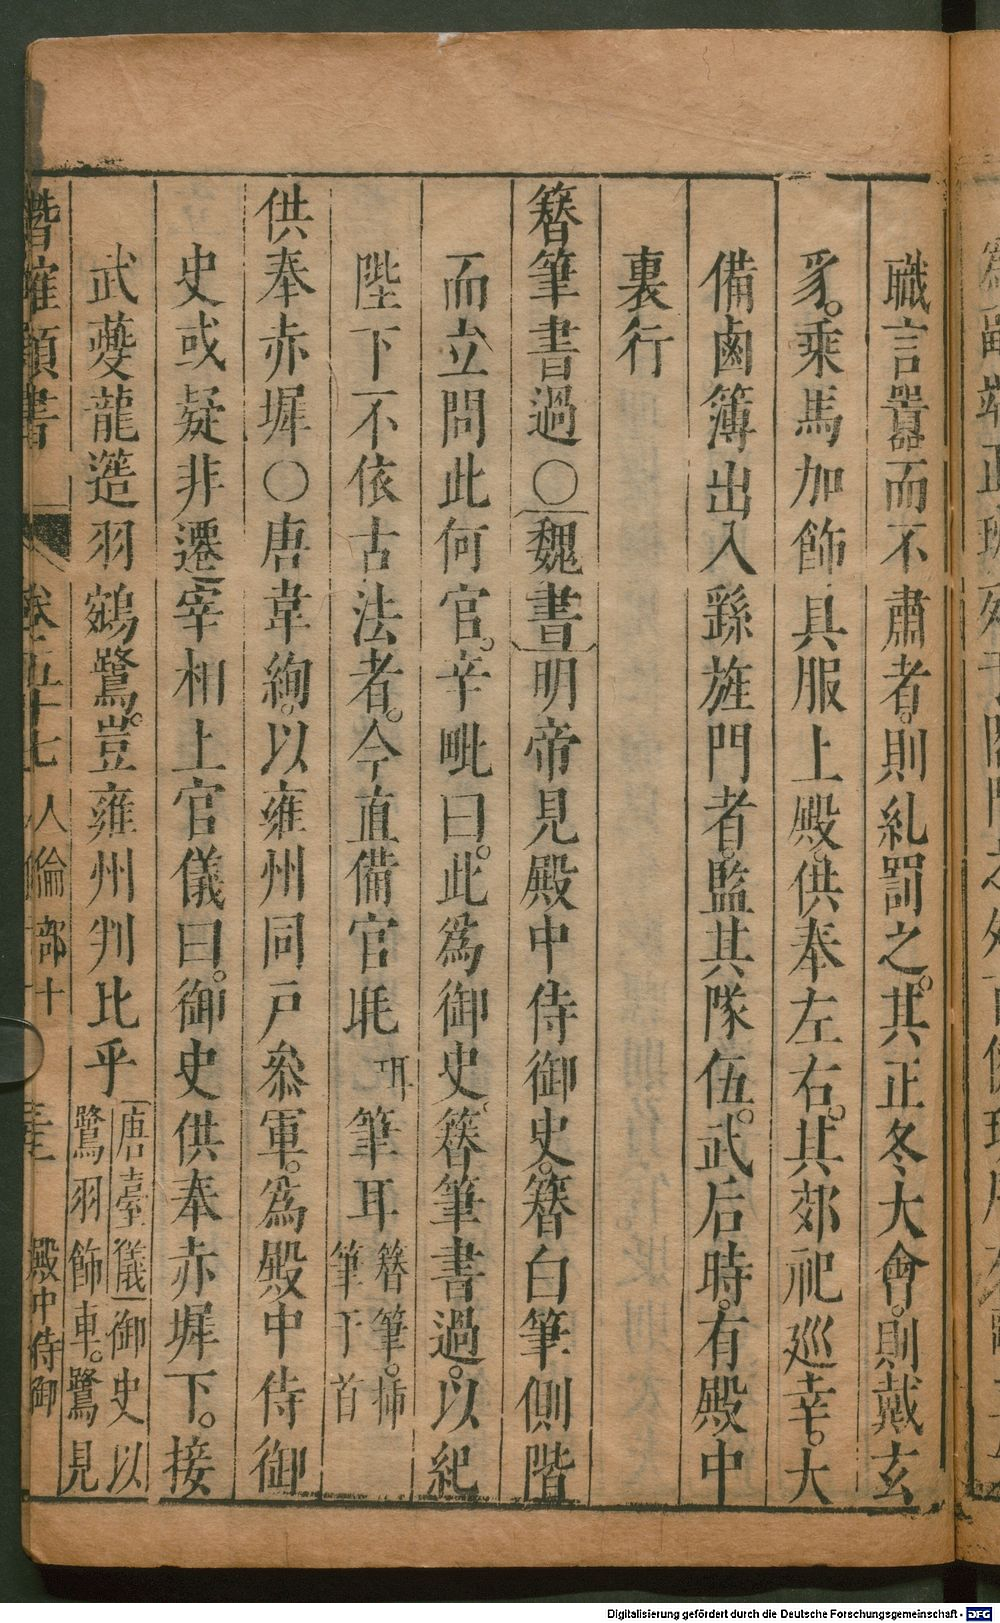 職言囂而不肅者。則糺罰之。其正冬大會。則戴玄
豸。乘馬加飾。具服上殿。供奉左右。其郊祀巡幸。大
備鹵簿出入繇旌門者。監其隊伍。武后時。有殿中
裏行
簪筆書過〇魏書明帝見殿中侍御史。簪白筆側階
而立問此何官。辛毗曰。此為御史。簪筆書過。以紀
陛下不依古法者。今直備官毦 珥 筆耳 簪筆。插
筆于首
供奉赤墀〇唐韋絢。以雍州同戸參軍。為殿中侍御
史或疑非遷宰相上官儀曰。御史供奉赤墀下。接
武夔龍簉羽鵷鷺。豈雍州判比乎 唐臺儀御史以
鷺羽飾車。鷺見
潛確類書 卷五十七 人倫部十 殿中侍御
Digitalisierung gefördert durch die Deutsche Forschungsgemeinschaft - DFG